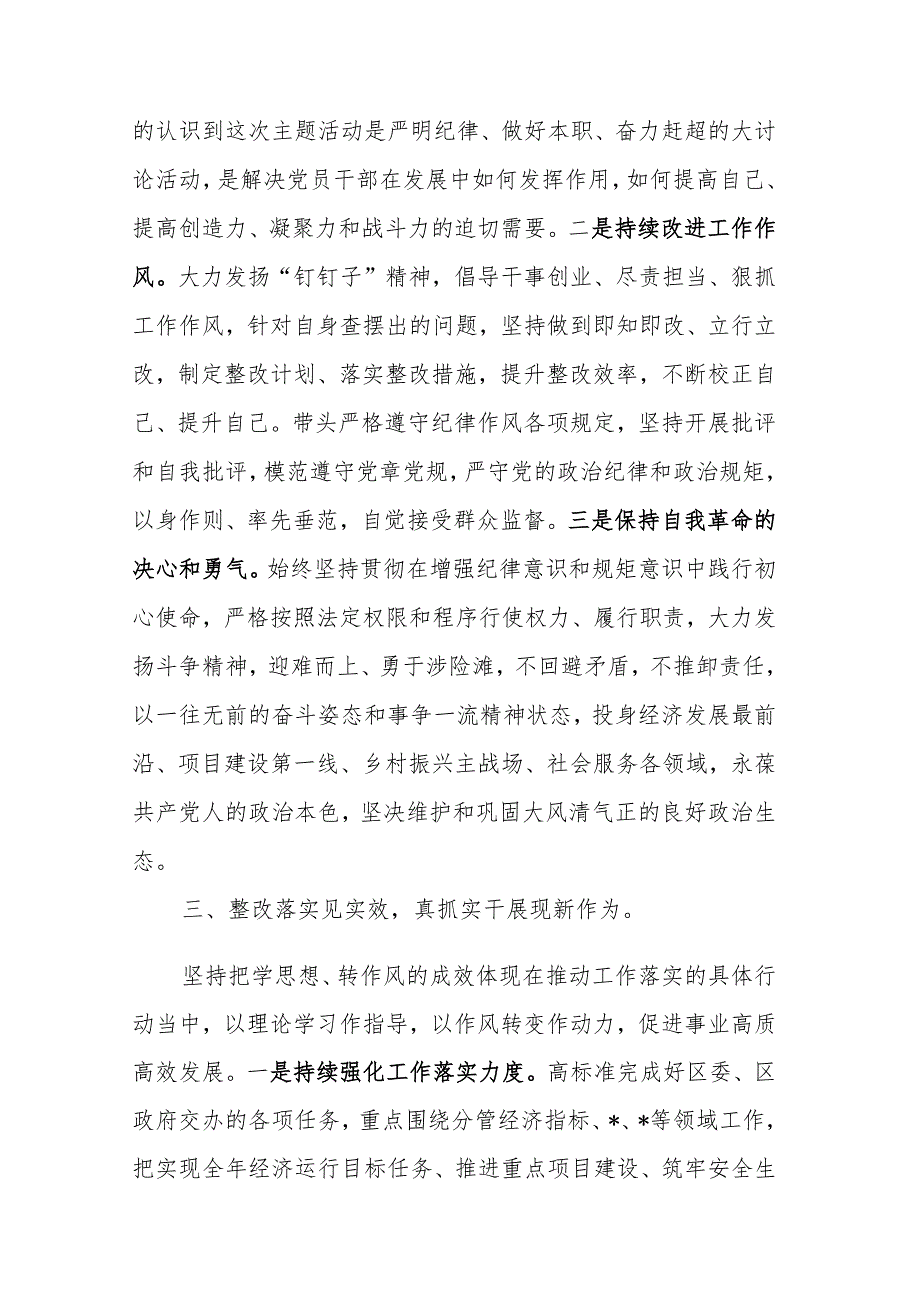 的认识到这次主题活动是严明纪律、做好本职、奋力赶超的大讨
论活动，是解决党员干部在发展中如何发挥作用，如何提高自己、
提高创造力、凝聚力和战斗力的迫切需要。二是持续改进工作作
风。大力发扬“钉钉子”精神，倡导干事创业、尽责担当、狠抓
工作作风，针对自身查摆出的问题，坚持做到即知即改、立行立
改，制定整改计划、落实整改措施，提升整改效率，不断校正自
己、提升自己。带头严格遵守纪律作风各项规定，坚持开展批评
和自我批评，模范遵守党章党规，严守党的政治纪律和政治规矩，
以身作则、率先垂范，自觉接受群众监督。三是保持自我革命的
决心和勇气。始终坚持贯彻在增强纪律意识和规矩意识中践行初
心使命，严格按照法定权限和程序行使权力、履行职责，大力发
扬斗争精神，迎难而上、勇于涉险滩，不回避矛盾，不推卸责任，
以一往无前的奋斗姿态和事争一流精神状态，投身经济发展最前
沿、项目建设第一线、乡村振兴主战场、社会服务各领域，永葆
共产党人的政治本色，坚决维护和巩固大风清气正的良好政治生
态。
三、整改落实见实效，真抓实干展现新作为。
坚持把学思想、转作风的成效体现在推动工作落实的具体行
动当中，以理论学习作指导，以作风转变作动力，促进事业高质
高效发展。一是持续强化工作落实力度。高标准完成好区委、区
政府交办的各项任务，重点围绕分管经济指标、*、*等领域工作，
把实现全年经济运行目标任务、推进重点项目建设、筑牢安全生